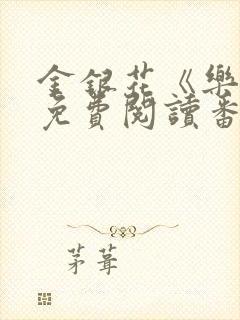 金銀花《樂
免費閱讀番
茅葺